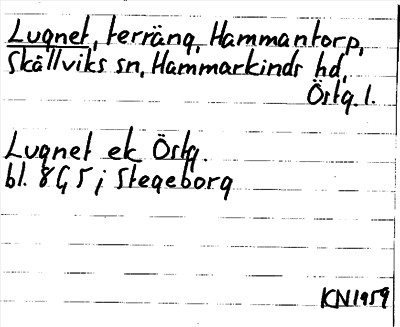 Lugnet, terräng, Hammantorp,
Skällviks sn, Hammarkinds hd,
Östg. l.
Lugnet ek Östg.
bl. 8G5 i Stegeborg
KN1959